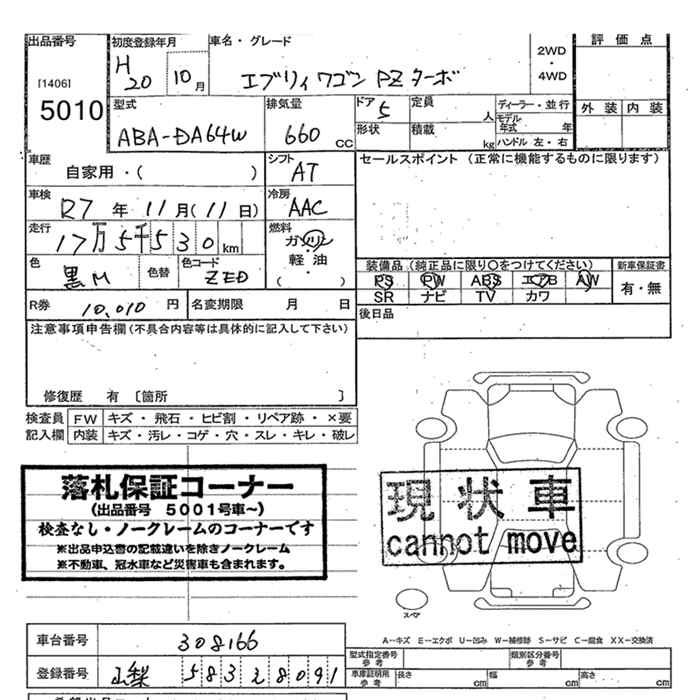 出品番号
[1406]
5010
初度登録年月
H20 10月
車名・グレード
エブリィワゴン PZターボ
2WD
4WD
評価点
外装 内装
型式
ABA-DA64W
排気量
660 CC
ドア 5
定員 人
形状
積載 kg
ディーラー・並行
モデル年式 年
ハンドル 左・右
車歴
自家用・( )
シフト
AT
セールスポイント (正常に機能するものに限ります)
車検
R7年11月(11日)
冷房
AAC
走行
17万5千530km
燃料
ガソリン
軽・油
( )
色
黒M
色替
色コード
ZED
装備品 (純正品に限り○をつけてください)
PS PW ABS エアB AW
SR ナビ TV カワ
新車保証書
有・無
R券 10,010円
名変期限 月 日
後日品
注意事項申告欄(不具合内容等は具体的に記入して下さい)
修復歴 有 〔箇所 〕
検査員記入欄
FW キズ・飛石・ヒビ割・リペア跡・×要
内装 キズ・汚レ・コゲ・穴・スレ・キレ・破レ
落札保証コーナー
(出品番号 5001号車~)
検査なし・ノークレームのコーナーです
※出品申込書の記載違いを除きノークレーム
※不動車、冠水車など災害車も含まれます。
現状車
cannot move
スペア
A-キズ E-エクボ U-凹み W-補修跡 S-サビ C-腐食 XX-交換済
車台番号
308166
登録番号
山梨 583 2 8091
型式指定番号 参考
類別区分番号 参考
車庫証明用 参考
長さ cm
幅 cm
高さ cm